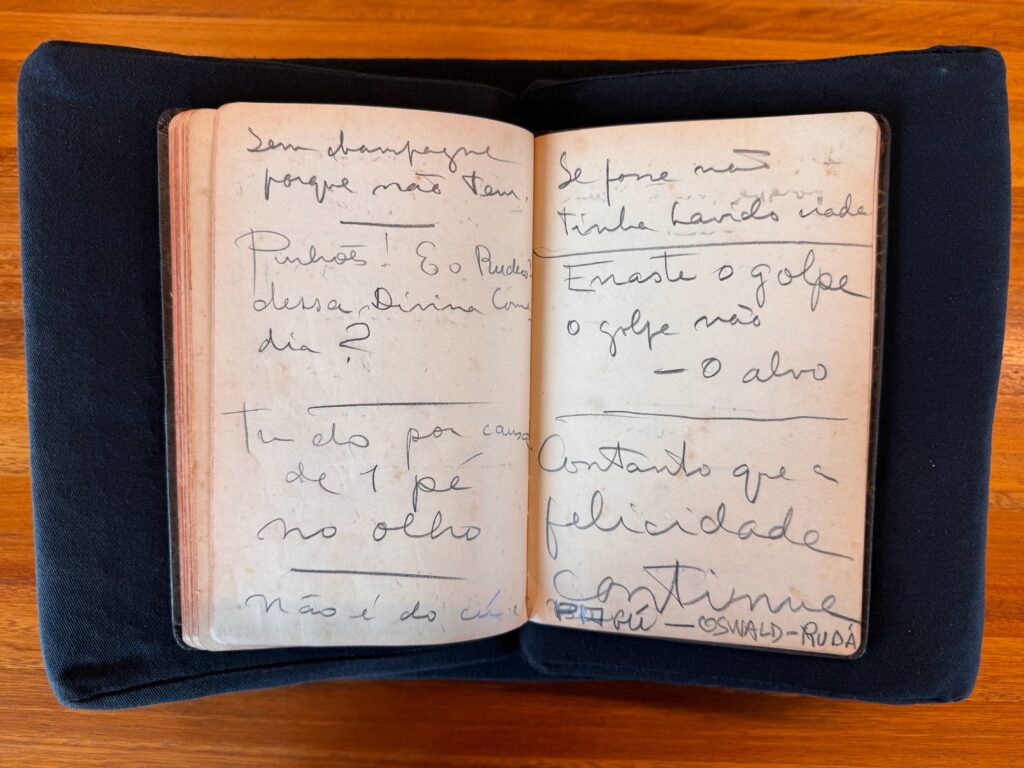 Sem champagne
porque não tem.
Pinhões! E o
dessa Divina Come
dia?
Tudo por causa
de 1 pé
no olho
Não é do
Se fosse não
tinha havido nada
Erraste o golpe
o golpe não
— O alvo
Contanto que a
felicidade
continue
PAGÚ — OSWALD - RUDÁ